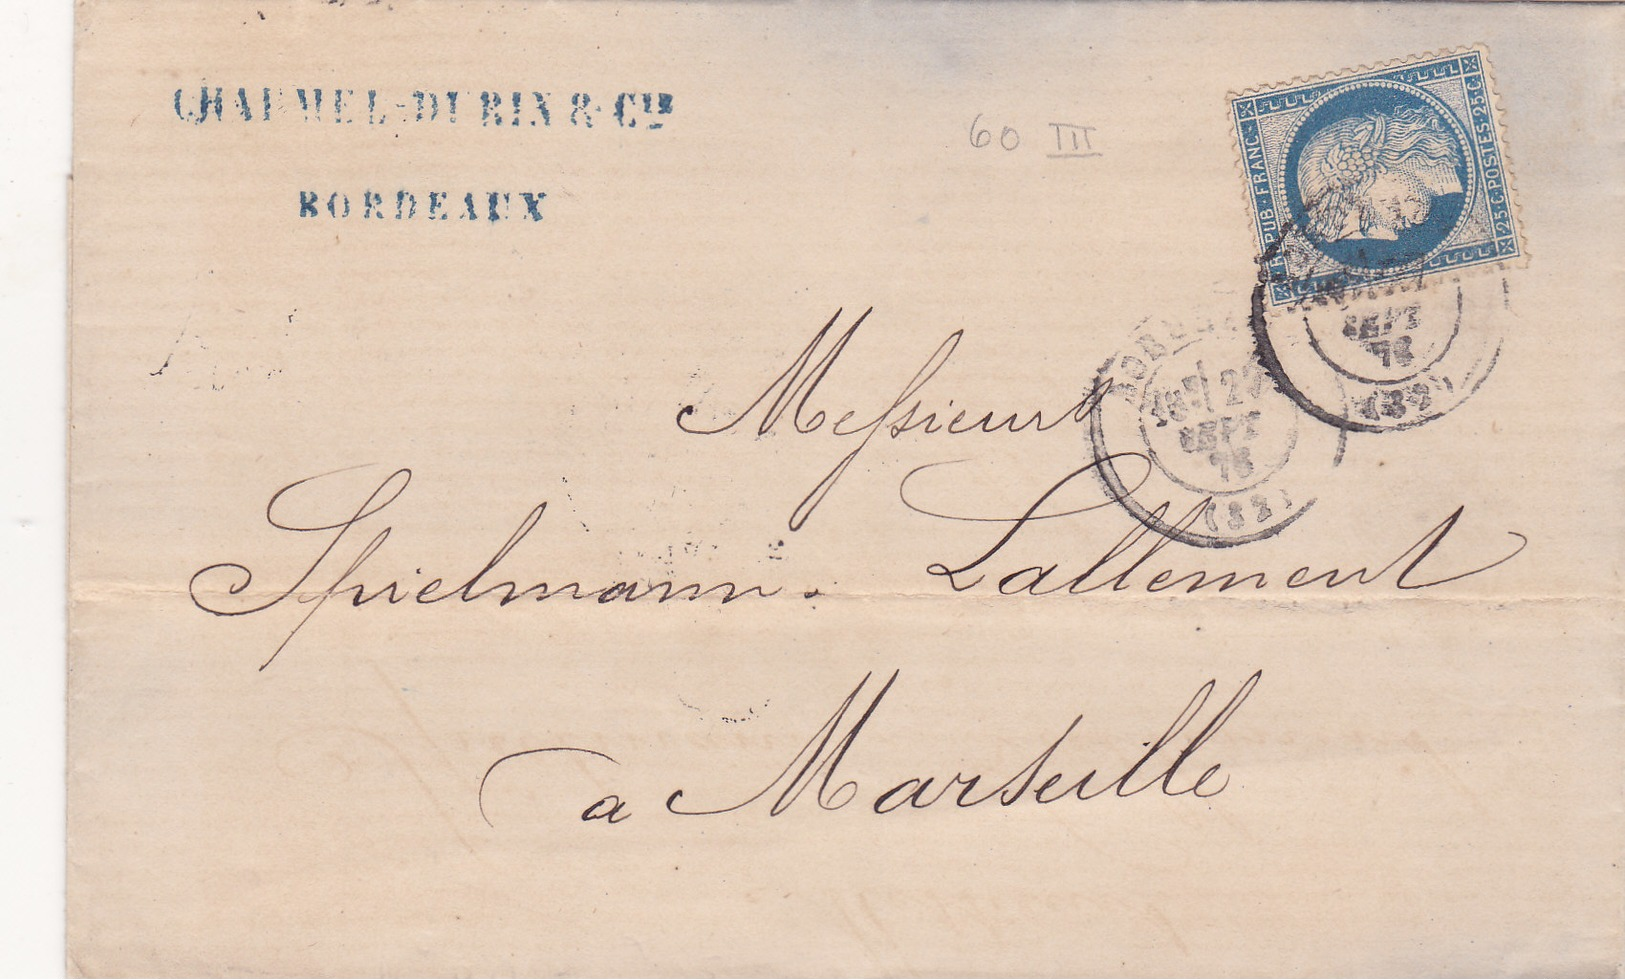 CHAUMEL-DURIN & CIE
BORDEAUX
60 III
REPUB·FRANC·
25·C·POSTES·25·C·
BORDEAUX
SEPT
76
(32)
Messieurs
Spielmann. Lallement
a Marseille